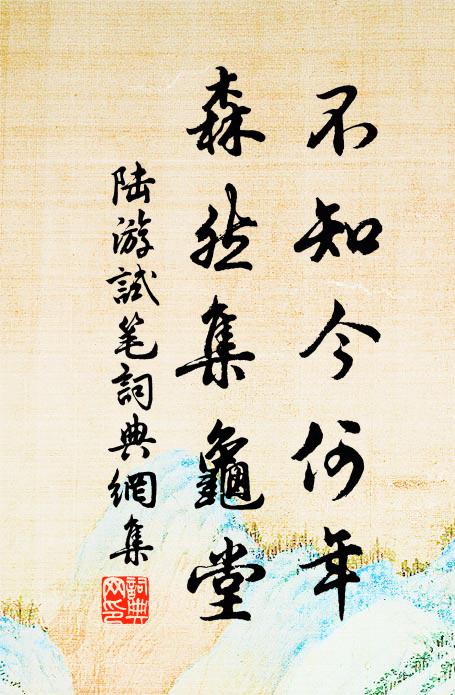 不知今何年
森然集龜堂
陆游試笔詞典網集
詞典